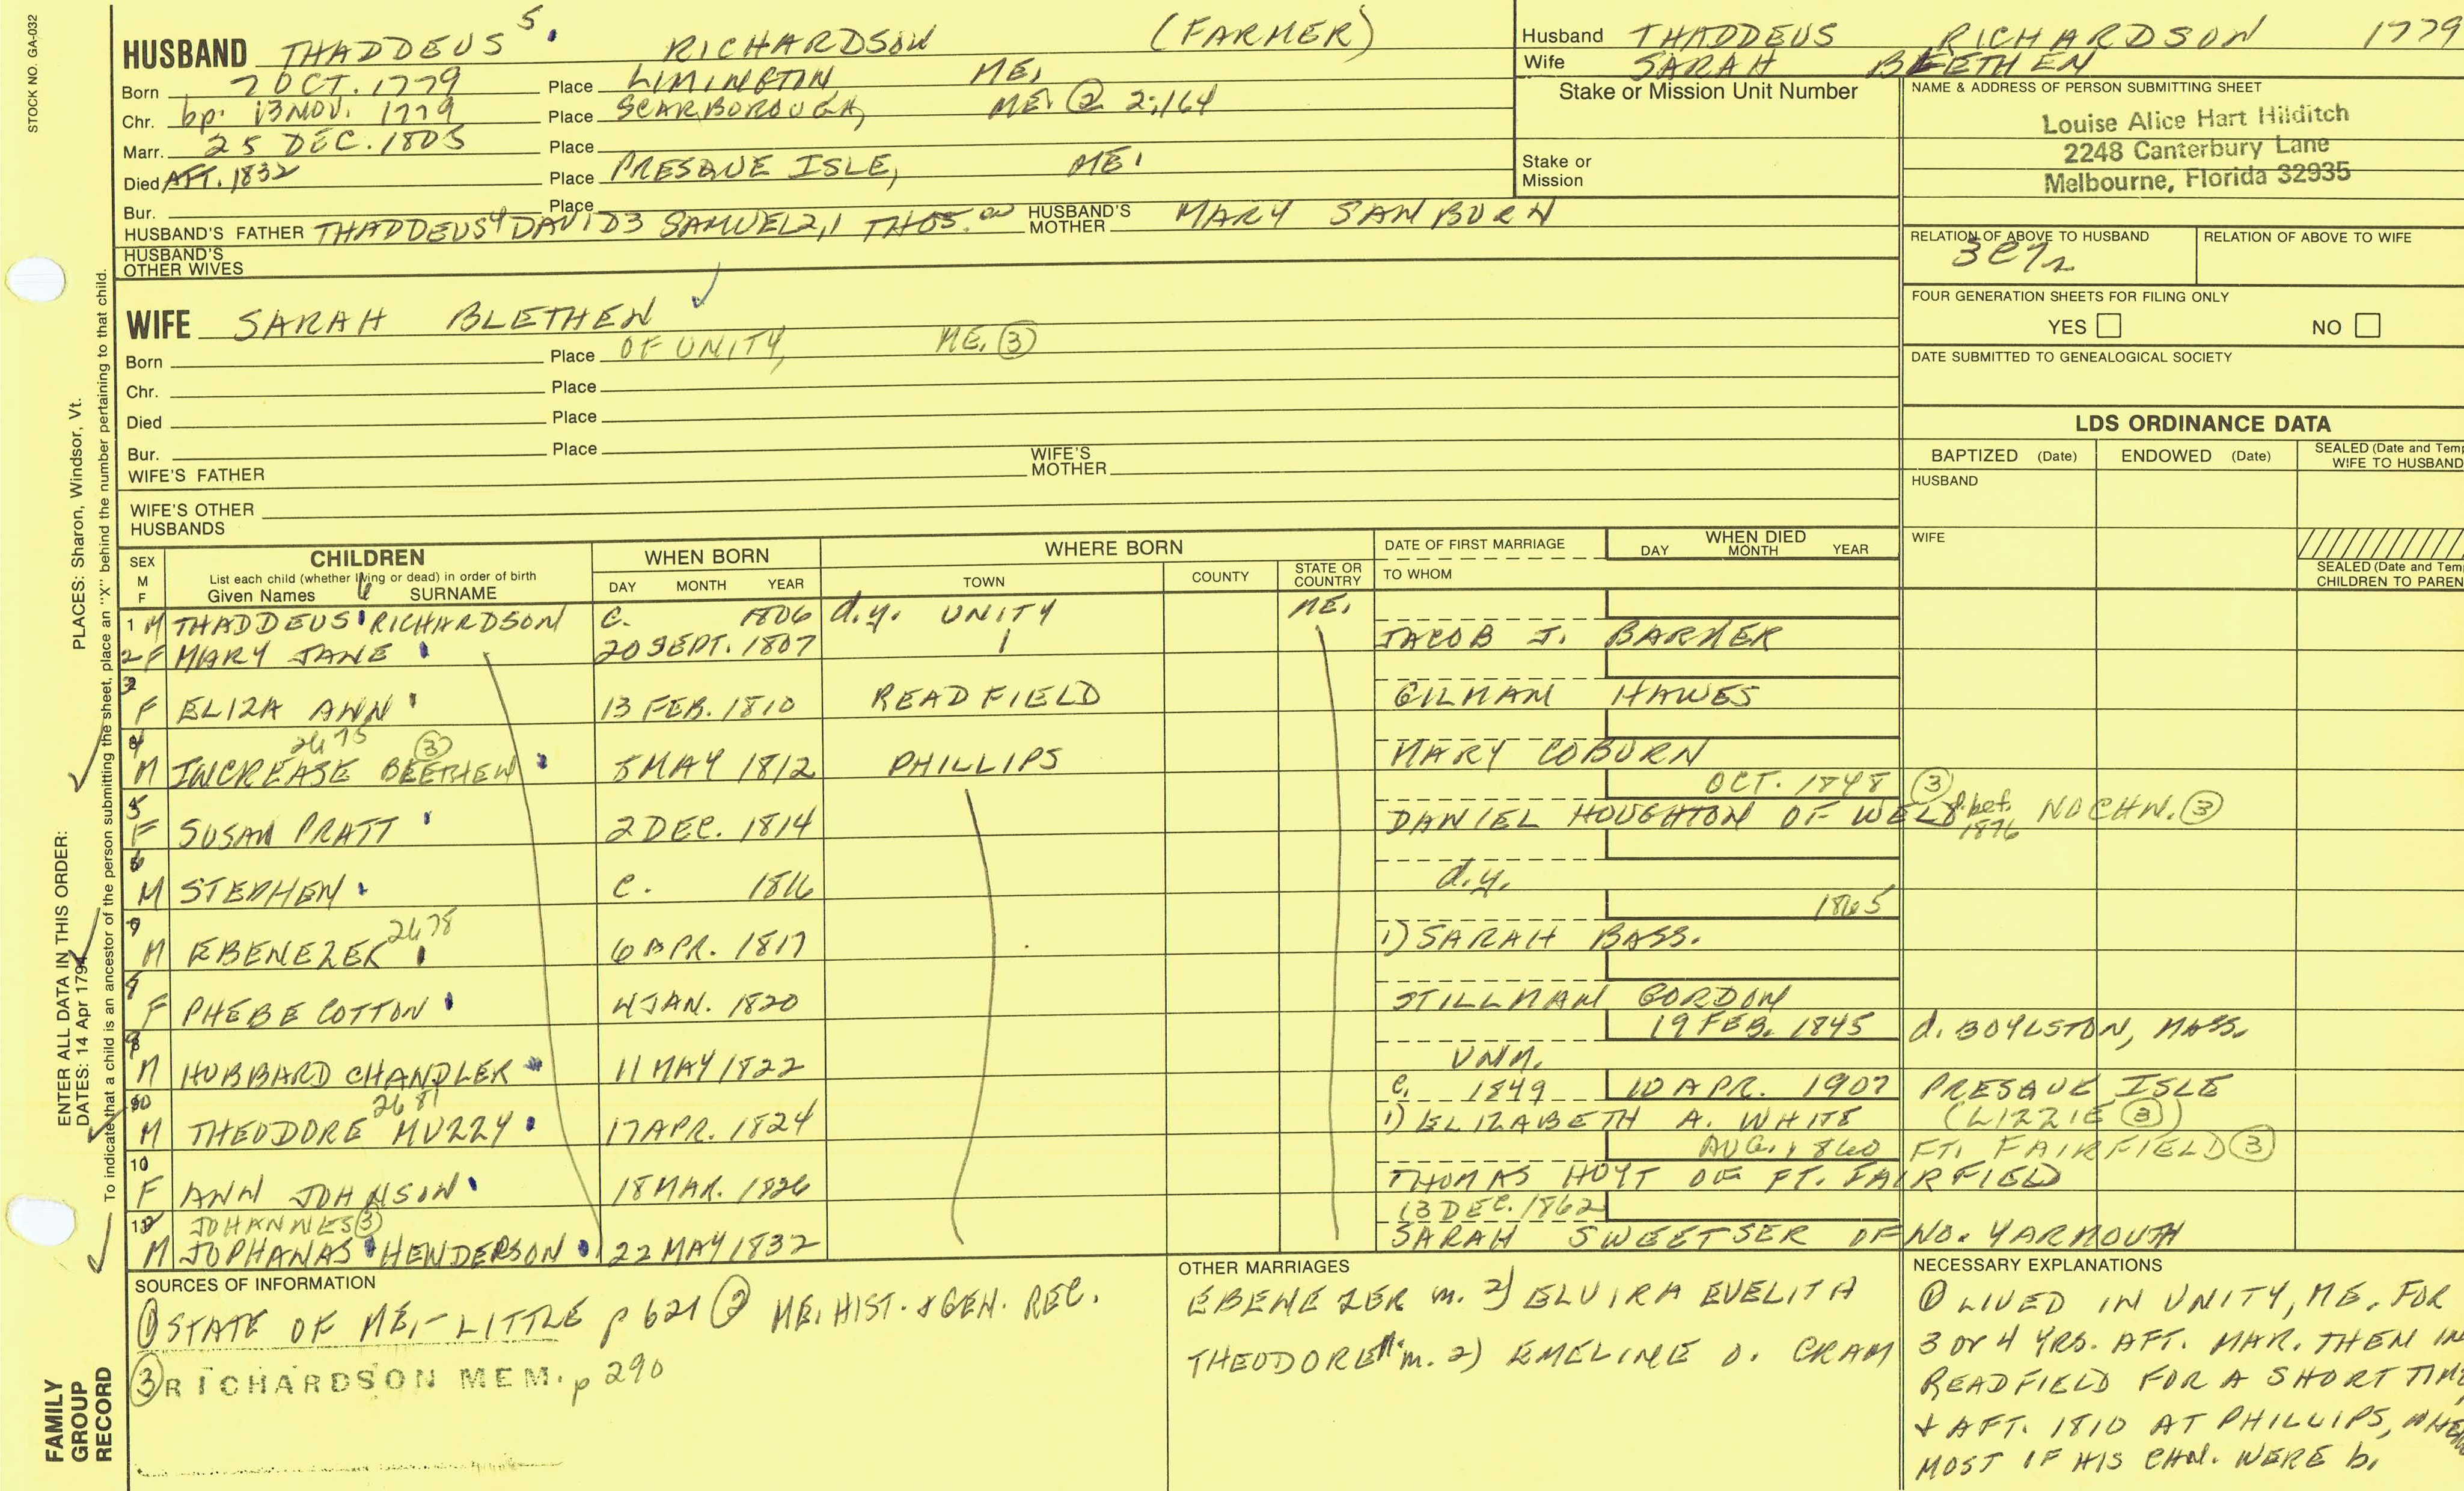 STOCK NO. GA-032
HUSBAND THADDEUS 5. RICHARDSON (FARMER)
Born 7 OCT. 1779 Place LIMINGTON, ME.
Chr. bp. 13 NOV. 1779 Place SCARBOROUGH, ME. ② 2:164
Marr. 25 DEC. 1805 Place
Died AFT. 1832 Place PRESQUE ISLE, ME.
Bur. Place
HUSBAND'S FATHER THADDEUS4 DAVID3 SAMUEL2,1 THOS. HUSBAND'S MOTHER MARY SANBURN
HUSBAND'S OTHER WIVES
Husband THADDEUS RICHARDSON 1779
Wife SARAH BLETHEN
Stake or Mission Unit Number
Stake or Mission
NAME & ADDRESS OF PERSON SUBMITTING SHEET
Louise Alice Hart Hilditch
2248 Canterbury Lane
Melbourne, Florida 32935
RELATION OF ABOVE TO HUSBAND RELATION OF ABOVE TO WIFE
3C7R
FOUR GENERATION SHEETS FOR FILING ONLY
YES NO
DATE SUBMITTED TO GENEALOGICAL SOCIETY
WIFE SARAH BLETHEN ✓
Born Place OF UNITY, ME. ③
Chr. Place
Died Place
Bur. Place
WIFE'S FATHER WIFE'S MOTHER
WIFE'S OTHER HUSBANDS
LDS ORDINANCE DATA
BAPTIZED (Date) ENDOWED (Date) SEALED (Date and Tem
WIFE TO HUSBAND
HUSBAND
WIFE
SEALED (Date and Tem
CHILDREN TO PAREN
SEX M F CHILDREN WHEN BORN WHERE BORN DATE OF FIRST MARRIAGE WHEN DIED
List each child (whether living or dead) in order of birth
Given Names 6 SURNAME DAY MONTH YEAR TOWN COUNTY STATE OR COUNTRY TO WHOM DAY MONTH YEAR
1 M THADDEUS RICHARDSON C. 1806 d.y. UNITY ME.
2 F MARY JANE 20 SEPT. 1807 JACOB J. BARKER
3 F ELIZA ANN 13 FEB. 1810 READFIELD GILMAN HAWES
2675 ③
4 M INCREASE BLETHEN 5 MAY 1812 PHILLIPS MARY COBURN
OCT. 1848 ③
5 F SUSAN PRATT 2 DEC. 1814 DANIEL HOUGHTON OF WELD d. bef. 1876 NO CHN. ③
6 M STEPHEN C. 1816 d.y.
2678 1865
7 M EBENEZER 6 APR. 1817 1) SARAH BASS.
8 F PHEBE COTTON 4 JAN. 1820 STILLMAN GORDON
19 FEB. 1845 d. BOYLSTON, MASS.
9 M HUBBARD CHANDLER 11 MAY 1822 UNM.
2681 C. 1849 10 APR. 1907 PRESQUE ISLE
10 M THEODORE MUZZY 17 APR. 1824 1) ELIZABETH A. WHITE (LIZZIE ③)
AUG. 1860 FT. FAIRFIELD ③
10 F ANN JOHNSON 18 MAR. 1826 THOMAS HOYT OF FT. FAIRFIELD
JOHANNES ③ 13 DEC. 1862
12 M JOPHANAS HENDERSON 22 MAY 1832 SARAH SWEETSER OF NO. YARMOUTH
SOURCES OF INFORMATION
① STATE OF ME, - LITTLE p 621 ② ME. HIST. & GEN. REC.
③ RICHARDSON MEM. p 290
OTHER MARRIAGES
EBENEZER m. 2) ELVIRA EVELITA
THEODORE m. 2) EMELINE O. CRAM
NECESSARY EXPLANATIONS
① LIVED IN UNITY, ME. FOR
3 or 4 YRS. AFT. MAR. THEN IN
READFIELD FOR A SHORT TIME
+ AFT. 1810 AT PHILLIPS, WHE
MOST OF HIS CHN. WERE b.
FAMILY GROUP RECORD
ENTER ALL DATA IN THIS ORDER:
DATES: 14 Apr 1794
PLACES: Sharon, Windsor, Vt.
To indicate that a child is an ancestor of the person submitting the sheet, place an "X" behind the number pertaining to that child.